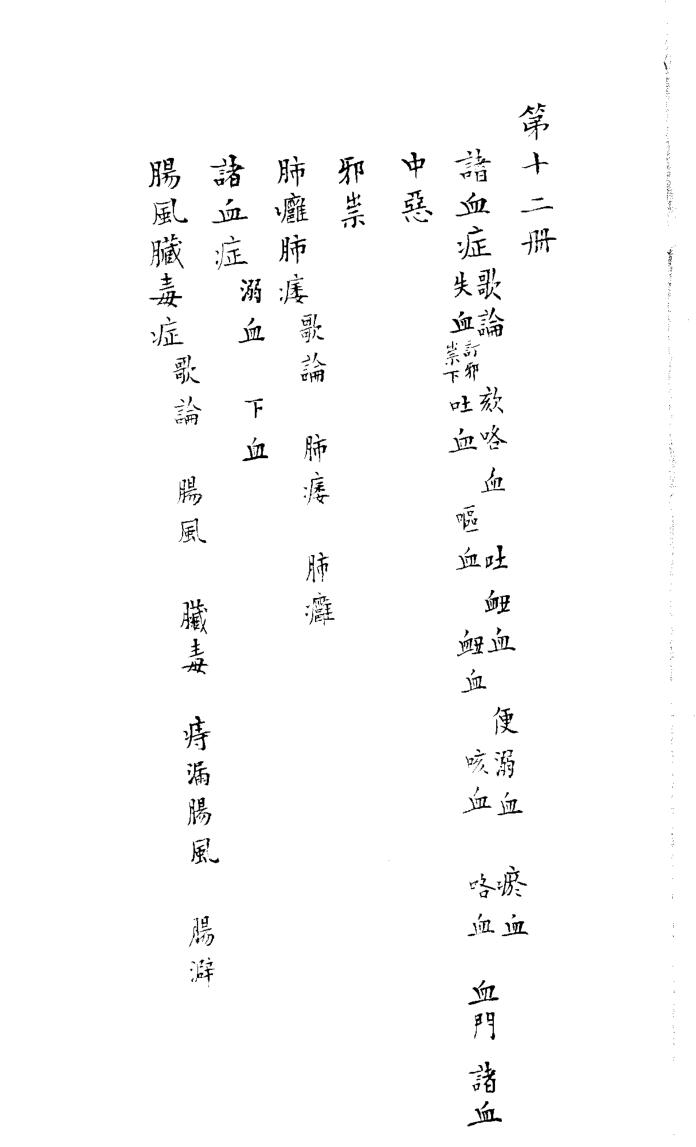 第十二册
諸血症 歌論 欬咯血 吐衄血 便溺血 瘀血
失血 訂邪祟下 吐血 嘔血 衄血 咳血 咯血 血門 諸血
中惡
邪祟
肺癰肺痿 歌論 肺痿 肺癰
諸血症 溺血 下血
腸風臟毒症 歌論 腸風 臟毒 痔漏腸風 腸澼